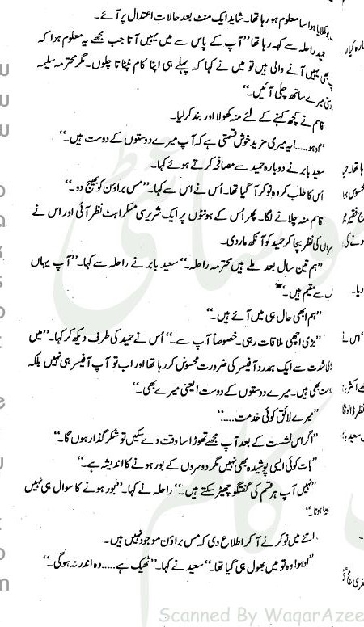 معلوم ہو رہا تھا۔ شاید ایک منٹ بعد حالات اعتدال پر آئے۔
حمید راحلہ سے کہہ رہا تھا "آپ کے پاس سے میں یہیں آتا جب مجھے یہ معلوم ہوا کہ
یہیں آنے والی ہیں تو میں نے کہا کہ پہلے ہی اپنا کام نپٹاتا چلوں۔ مگر محترمہ سلیمہ
میرے ساتھ چلی آئیں۔"
قاسم نے کچھ کہنے کے لئے منہ کھولا اور بند کر لیا۔
"اوہو...! یہ میری مزید خوش قسمتی ہے کہ آپ میرے دوستوں کے دوست ہیں۔"
سعید بابر نے دوبارہ حمید سے مصافحہ کرتے ہوئے کہا۔
اس کا طلب کردہ نوکر آ گیا تھا۔ اُس نے اس سے کہا۔ "مس براؤن کو بھیج دو۔"
قاسم منہ چلانے لگا۔ پھر اُس کے ہونٹوں پر ایک شریر سی مسکراہٹ نظر آئی اور اس نے
کی نظر بچا کر حمید کو آنکھ مار دی۔
"ہم تین سال بعد ملے ہیں محترمہ راحلہ۔" سعید بابر نے راحلہ سے کہا۔ "آپ یہاں
سے مقیم ہیں۔"
"ہم ابھی حال ہی میں آئے ہیں۔"
"بڑی اچھی ملاقات رہی۔ خصوصاً آپ سے۔" اُس نے حمید کی طرف دیکھ کر کہا۔ "میں
شدت سے ایک ہمدرد آفیسر کی ضرورت محسوس کر رہا تھا اور اب تو آپ آفیسر ہی نہیں بلکہ
بھی ہیں۔ میرے دوستوں کے دوست یعنی میرے بھی۔"
"میرے لائق کوئی خدمت....."
"اگر اس نشست کے بعد آپ مجھے تھوڑا سا وقت دے سکیں تو شکر گذار ہوں گا۔"
"بات کوئی ایسی پوشیدہ بھی نہیں مگر دوسروں کے بور ہونے کا اندیشہ ہے۔"
"نہیں آپ ہر قسم کی گفتگو چھیڑ سکتے ہیں۔" راحلہ نے کہا۔ "بور ہونے کا سوال ہی نہیں
میں نوکر نے آ کر اطلاع دی کہ مس براؤن موجود نہیں ہیں۔
"اوہو! وہ تو میں بھول ہی گیا تھا۔" سعید نے کہا۔ "ٹھیک ہے..... وہ اندر نہ ہو گی۔"
Scanned By WaqarAzee